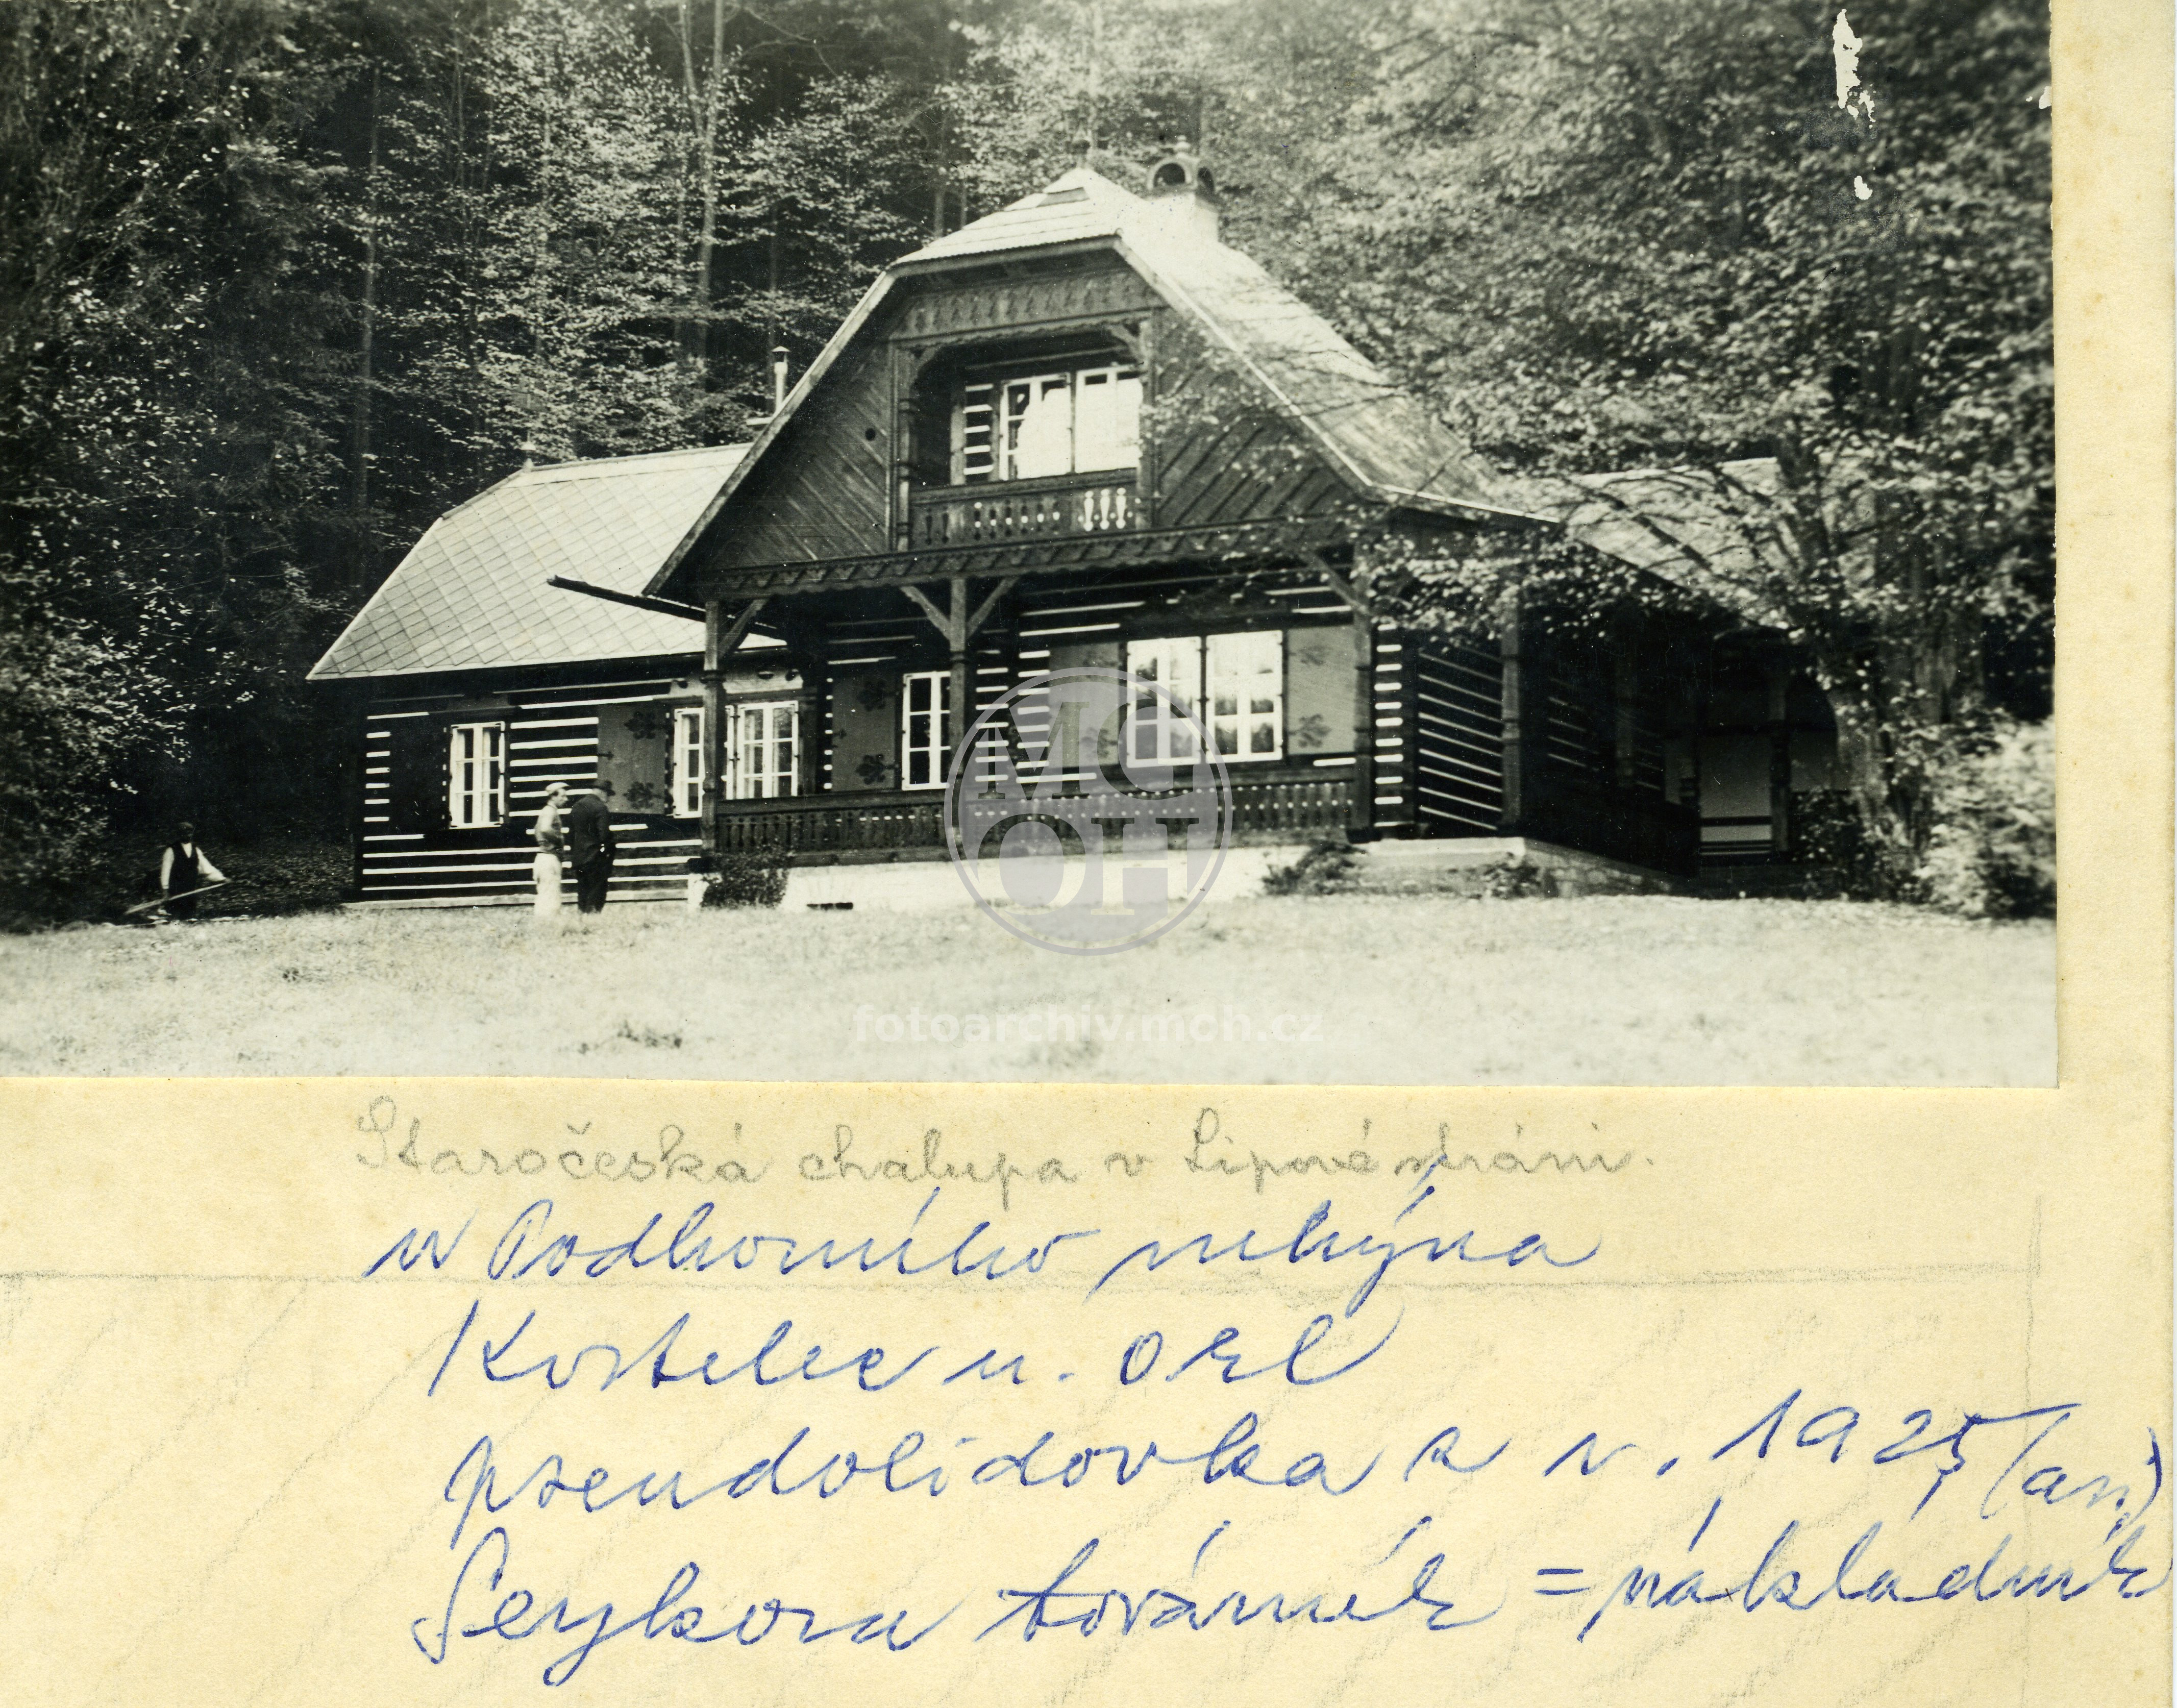 MC
OH
fotoarchiv.mch.cz
Staročeská chalupa v Lipové stráni.
u Podhorního mlýna
Kostelec n. Orl
pseudolidovka z r. 1925 (asi)
Seykora továrník = nákladník